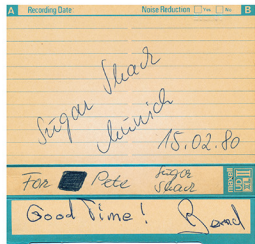 A Recording Date: Noise Reduction Yes No B
Sugar Shack
Munich
15.02.80
For Pete Sugar Shack
maxell UD
Good Time! Bernd